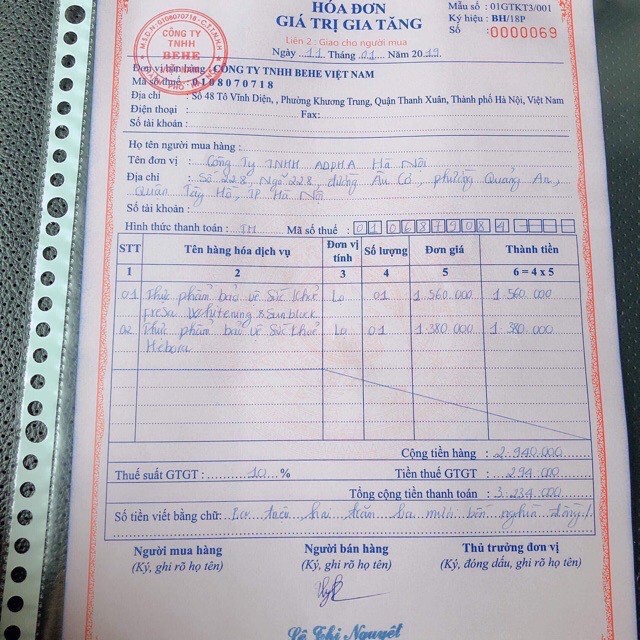 HÓA ĐƠN
GIÁ TRỊ GIA TĂNG
Liên 2 : Giao cho người mua
Ngày 11 Tháng 01 Năm 2019
Mẫu số : 01GTKT3/001
Ký hiệu : BH/18P
Số : 0000069
M.S.D.N: 0108070718 - C.T.T.N.H.H
CÔNG TY
TNHH
BEHE
Đơn vị bán hàng : CÔNG TY TNHH BEHE VIỆT NAM
Mã số thuế : 0108070718
Địa chỉ : Số 48 Tô Vĩnh Diện, , Phường Khương Trung, Quận Thanh Xuân, Thành phố Hà Nội, Việt Nam
Điện thoại : Fax:
Số tài khoản :
Họ tên người mua hàng :
Tên đơn vị : Công Ty TNHH ADPHA Hà Nội
Địa chỉ : Số 228, Ngõ 228, đường Âu Cơ, phường Quảng An,
Quận Tây Hồ, TP Hà Nội
Số tài khoản :
Hình thức thanh toán : TM Mã số thuế : 0106879084
STT Tên hàng hóa dịch vụ Đơn vị tính Số lượng Đơn giá Thành tiền
1 2 3 4 5 6 = 4 x 5
01 Thực phẩm bảo vệ Sức khỏe Lọ 01 1.560.000 1.560.000
Fresa Whitening & Sunblock
02 Thực phẩm bảo vệ Sức khỏe Lọ 01 1.380.000 1.380.000
Hebora
Cộng tiền hàng : 2.940.000
Thuế suất GTGT : 10 % Tiền thuế GTGT : 294.000
Tổng cộng tiền thanh toán : 3.234.000
Số tiền viết bằng chữ: Ba triệu hai trăm ba mươi bốn nghìn đồng./.
Người mua hàng Người bán hàng Thủ trưởng đơn vị
(Ký, ghi rõ họ tên) (Ký, ghi rõ họ tên) (Ký, đóng dấu, ghi rõ họ tên)
Lê Thị Nguyệt